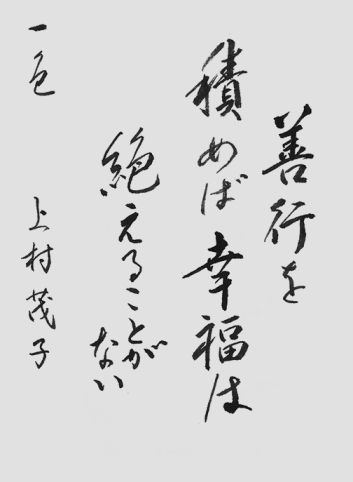 善行を
積めば幸福は
絶えることが
ない
一色
上村茂子